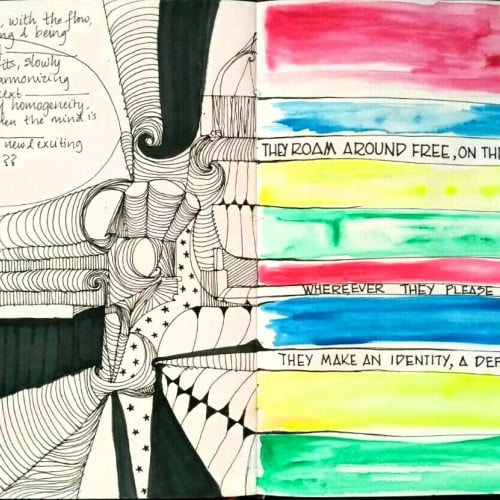 , with the flow,
ng & being
its, slowly
armonizing
text
of homogeneity,
hen the mind is
new & exciting
??
THEY ROAM AROUND FREE, ON THE
WHEREEVER THEY PLEASE
THEY MAKE AN IDENTITY, A DEF